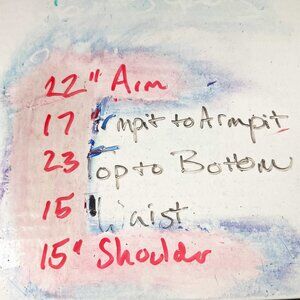 22" Arm
17" Armpit to Armpit
23 Top to Bottom
15 Waist
15" Shoulder